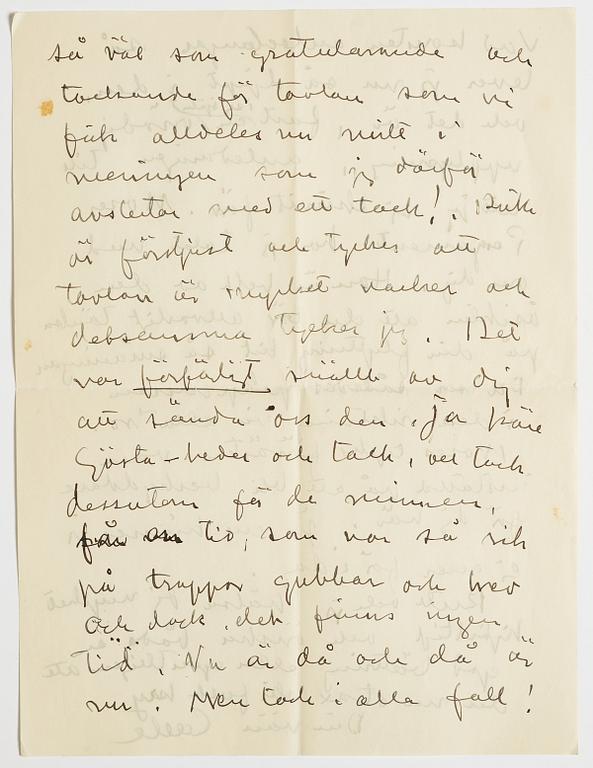 så väl som gratulerande och
tackande för tavlan som vi
fick alldeles nu mitt i
meningen som jag därför
avslutar med ett tack!
är förtjust och tycker att
tavlan är mycket vacker och
detsamma tycker jag. Det
var förfärligt snällt av dig
att sända oss den. Ja käre
Gösta – heder och tack, och tack
dessutom för de minnen,
från en tid, som var så rik
på trappor gubbar och brev
och dock, det finns ingen
tid. Nu är då och då är
nu. Men tack i alla fall!